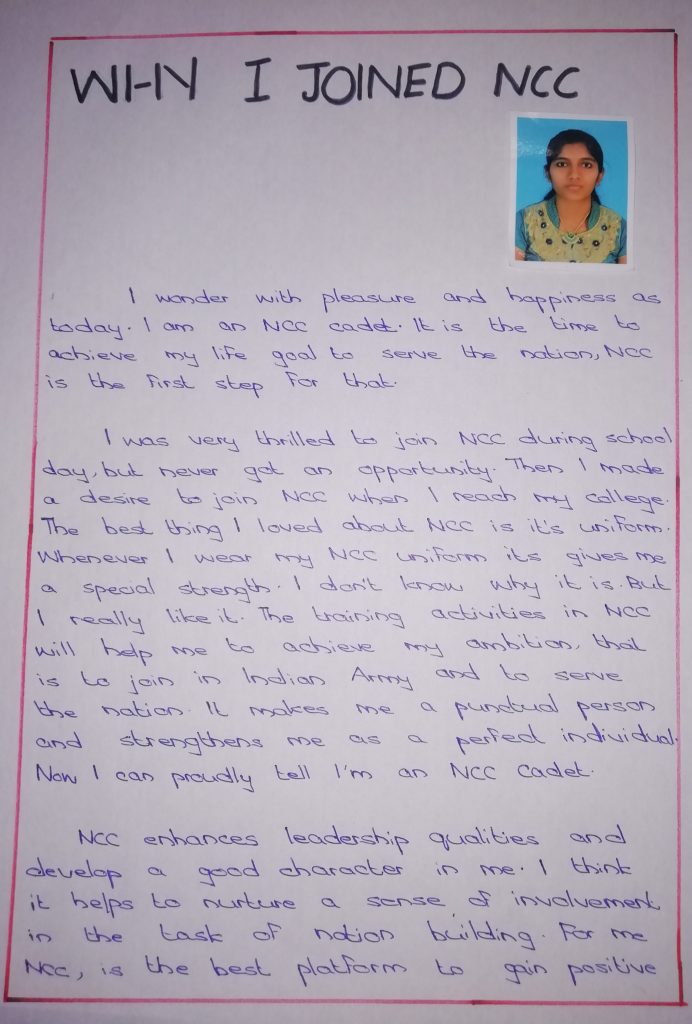 WHY I JOINED NCC
I wonder with pleasure and happiness as
today. I am an NCC cadet. It is the time to
achieve my life goal to serve the nation, NCC
is the first step for that.
I was very thrilled to join NCC during school
day, but never got an opportunity. Then I made
a desire to join NCC when I reach my college.
The best thing I loved about NCC is it's uniform.
Whenever I wear my NCC uniform its gives me
a special strength. I don't know why it is. But
I really like it. The training activities in NCC
will help me to achieve my ambition, that
is to join in Indian Army and to serve
the nation. It makes me a punctual person
and strengthens me as a perfect individual.
Now I can proudly tell I'm an NCC Cadet.
NCC enhances leadership qualities and
develop a good character in me. I think
it helps to nurture a sense of involvement
in the task of nation building. For me
NCC, is the best platform to gain positive